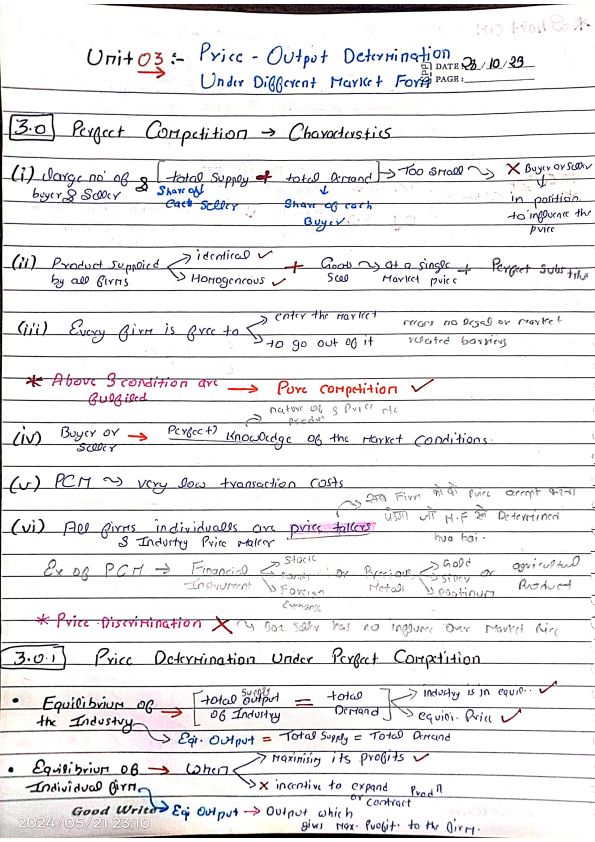 Unit 03 :- Price - Output Determination
Under Different Market Form
DATE 23/10/23
PAGE:
3.0 Perfect Competition → Characterstics
(i) large no of buyer & Seller & [total Supply + total Demand] → Too small → X Buyer or Seller
Share of Each Seller
Share of each Buyer.
in position to influence the price
(ii) Product Supplied by all firms identical ✓ Homogeneous ✓ + Goods Sell at a single Market price + Perfect Substitu
(iii) Every firm is free to enter the Market to go out of it means no legal or market related barriers
* Above 3 condition are fulfilled → Pure competition ✓
nature of product & Price etc
(iv) Buyer or Seller → Perfect Knowledge of the Market Conditions.
(v) PCM → very low transaction costs
Firm को वो price accept करना
(vi) All firms individuals are price takers
पड़ेगा जो M.F से Determined
& Industry Price Maker
hua hai.
Ex of PCM → Financial Instrument Stock Foreign Exchange or Precious Metals Gold Silver Platinum or agricultural Product
* Price Discrimination X Seller has no influence over Market Price
3.0.1 Price Determination Under Perfect Competition
• Equilibrium of the Industry → [total output Supply of Industry = total Demand] industry is in equi.. ✓ equili. Price ✓
Eqi. Output = Total Supply = Total Demand
• Equilibrium of Individual firm → When Maximising its profits ✓
X incentive to expand or contract Prodn
Good Write
Eqi Output → Output which gives Max. Profit. to the firm.
2024/05/21 23:10